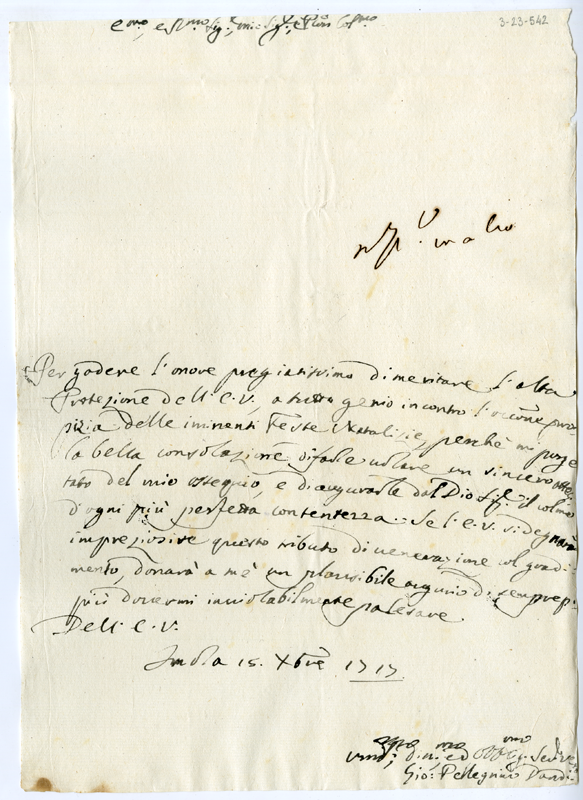 3-23-542
Per godere l'onore pregiatissimo di meritare l'alta
Protezione dell'E.V., a tutto genio incontro l'occ.ne pro-
pizia delle iminenti Feste Natalizie, perchè mi porge
la bella consolazione di farle volare un sincero attes-
tato del mio ossequio, e di augurarle dal Dio il colmo
d'ogni più perfetta contentezza. Se l'E.V. si degnarà
impreziosire questo tributo di venerazione col gradi-
mento, donarà a mè un plausibile augurio di sempre
più dovermi inviolabilmente palesare
Dell'E.V.
Imola 15. Xbre 1717.
Gio: Pellegrino Dandi